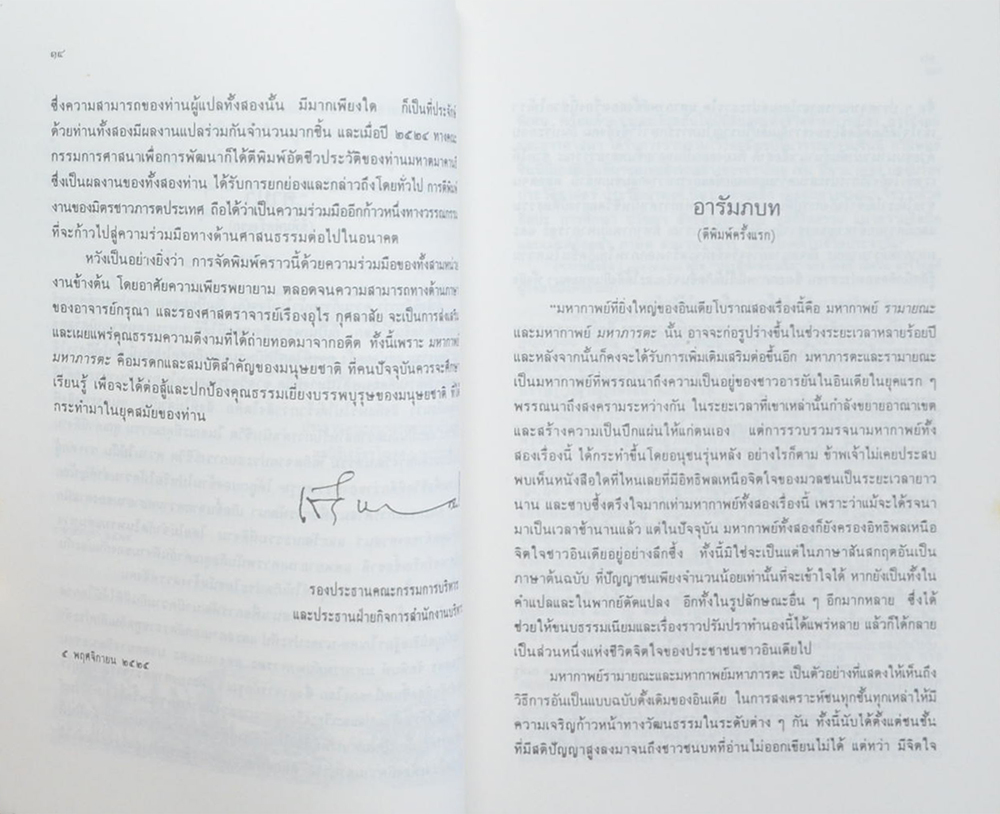 ๑๔
ซึ่งความสามารถของท่านผู้แปลทั้งสองนั้น มีมากเพียงใด ก็เป็นที่ประจักษ์
ด้วยท่านทั้งสองมีผลงานแปลร่วมกันจำนวนมากชิ้น และเมื่อปี ๒๕๒๔ ทางคณะ
กรรมการศาสนาเพื่อการพัฒนาก็ได้ตีพิมพ์อัตชีวประวัติของท่านมหาตมาคานธี
ซึ่งเป็นผลงานของทั้งสองท่าน ได้รับการยกย่องและกล่าวถึงโดยทั่วไป การตีพิมพ์
งานของมิตรชาวภารตประเทศ ถือได้ว่าเป็นความร่วมมืออีกก้าวหนึ่งทางวรรณกรรม
ที่จะก้าวไปสู่ความร่วมมือทางด้านศาสนธรรมต่อไปในอนาคต
หวังเป็นอย่างยิ่งว่า การจัดพิมพ์คราวนี้ด้วยความร่วมมือของทั้งสามหน่วย
งานข้างต้น โดยอาศัยความเพียรพยายาม ตลอดจนความสามารถทางด้านภาษา
ของอาจารย์กรุณา และรองศาสตราจารย์เรืองอุไร กุศลาสัย จะเป็นการส่งเสริม
และเผยแพร่คุณธรรมความดีงามที่ได้ถ่ายทอดมาจากอดีต ทั้งนี้เพราะ มหากาพย์
มหาภารตะ คือมรดกและสมบัติสำคัญของมนุษยชาติ ที่คนปัจจุบันควรจะศึกษา
เรียนรู้ เพื่อจะได้ต่อสู้และปกป้องคุณธรรมเยี่ยงบรรพบุรุษของมนุษยชาติ ที่ได้
กระทำมาในยุคสมัยของท่าน
รองประธานคณะกรรมการบริหาร
และประธานฝ่ายกิจการสำนักงานบริหาร
๕ พฤศจิกายน ๒๕๒๕
อารัมภบท
(ตีพิมพ์ครั้งแรก)
“มหากาพย์ที่ยิ่งใหญ่ของอินเดียโบราณสองเรื่องนี้คือ มหากาพย์ รามายณะ
และมหากาพย์ มหาภารตะ นั้น อาจจะก่อรูปร่างขึ้นในช่วงระยะเวลาหลายร้อยปี
และหลังจากนั้นก็คงจะได้รับการเพิ่มเติมเสริมต่อขึ้นอีก มหาภารตะและรามายณะ
เป็นมหากาพย์ที่พรรณนาถึงความเป็นอยู่ของชาวอารยันในอินเดียในยุคแรก ๆ
พรรณนาถึงสงครามระหว่างกัน ในระยะเวลาที่เขาเหล่านั้นกำลังขยายอาณาเขต
และสร้างความเป็นปึกแผ่นให้แก่ตนเอง แต่การรวบรวมรจนามหากาพย์ทั้ง
สองเรื่องนี้ ได้กระทำขึ้นโดยอนุชนรุ่นหลัง อย่างไรก็ตาม ข้าพเจ้าไม่เคยประสบ
พบเห็นหนังสือใดที่ไหนเลยที่มีอิทธิพลเหนือจิตใจของมวลชนเป็นระยะเวลายาว
นาน และซาบซึ้งตรึงใจมากเท่ามหากาพย์ทั้งสองเรื่องนี้ เพราะว่าแม้จะได้รจนา
มาเป็นเวลาช้านานแล้ว แต่ในปัจจุบัน มหากาพย์ทั้งสองก็ยังครองอิทธิพลเหนือ
จิตใจชาวอินเดียอยู่อย่างลึกซึ้ง ทั้งนี้มิใช่จะเป็นแต่ในภาษาสันสกฤตอันเป็น
ภาษาต้นฉบับ ที่ปัญญาชนเพียงจำนวนน้อยเท่านั้นที่จะเข้าใจได้ หากยังเป็นทั้งใน
คำแปลและในพากย์ดัดแปลง อีกทั้งในรูปลักษณะอื่น ๆ อีกมากหลาย ซึ่งได้
ช่วยให้ขนบธรรมเนียมและเรื่องราวปรัมปราทำนองนี้ได้แพร่หลาย แล้วก็ได้กลาย
เป็นส่วนหนึ่งแห่งชีวิตจิตใจของประชาชนชาวอินเดียไป
มหากาพย์รามายณะและมหากาพย์มหาภารตะ เป็นตัวอย่างที่แสดงให้เห็นถึง
วิธีการอันเป็นแบบฉบับดั้งเดิมของอินเดีย ในการสงเคราะห์ชนทุกชั้นทุกเหล่าให้มี
ความเจริญก้าวหน้าทางวัฒนธรรมในระดับต่าง ๆ กัน ทั้งนี้นับได้ตั้งแต่ชนชั้น
ที่มีสติปัญญาสูงลงมาจนถึงชาวชนบทที่อ่านไม่ออกเขียนไม่ได้ แต่ทว่า มีจิตใจ